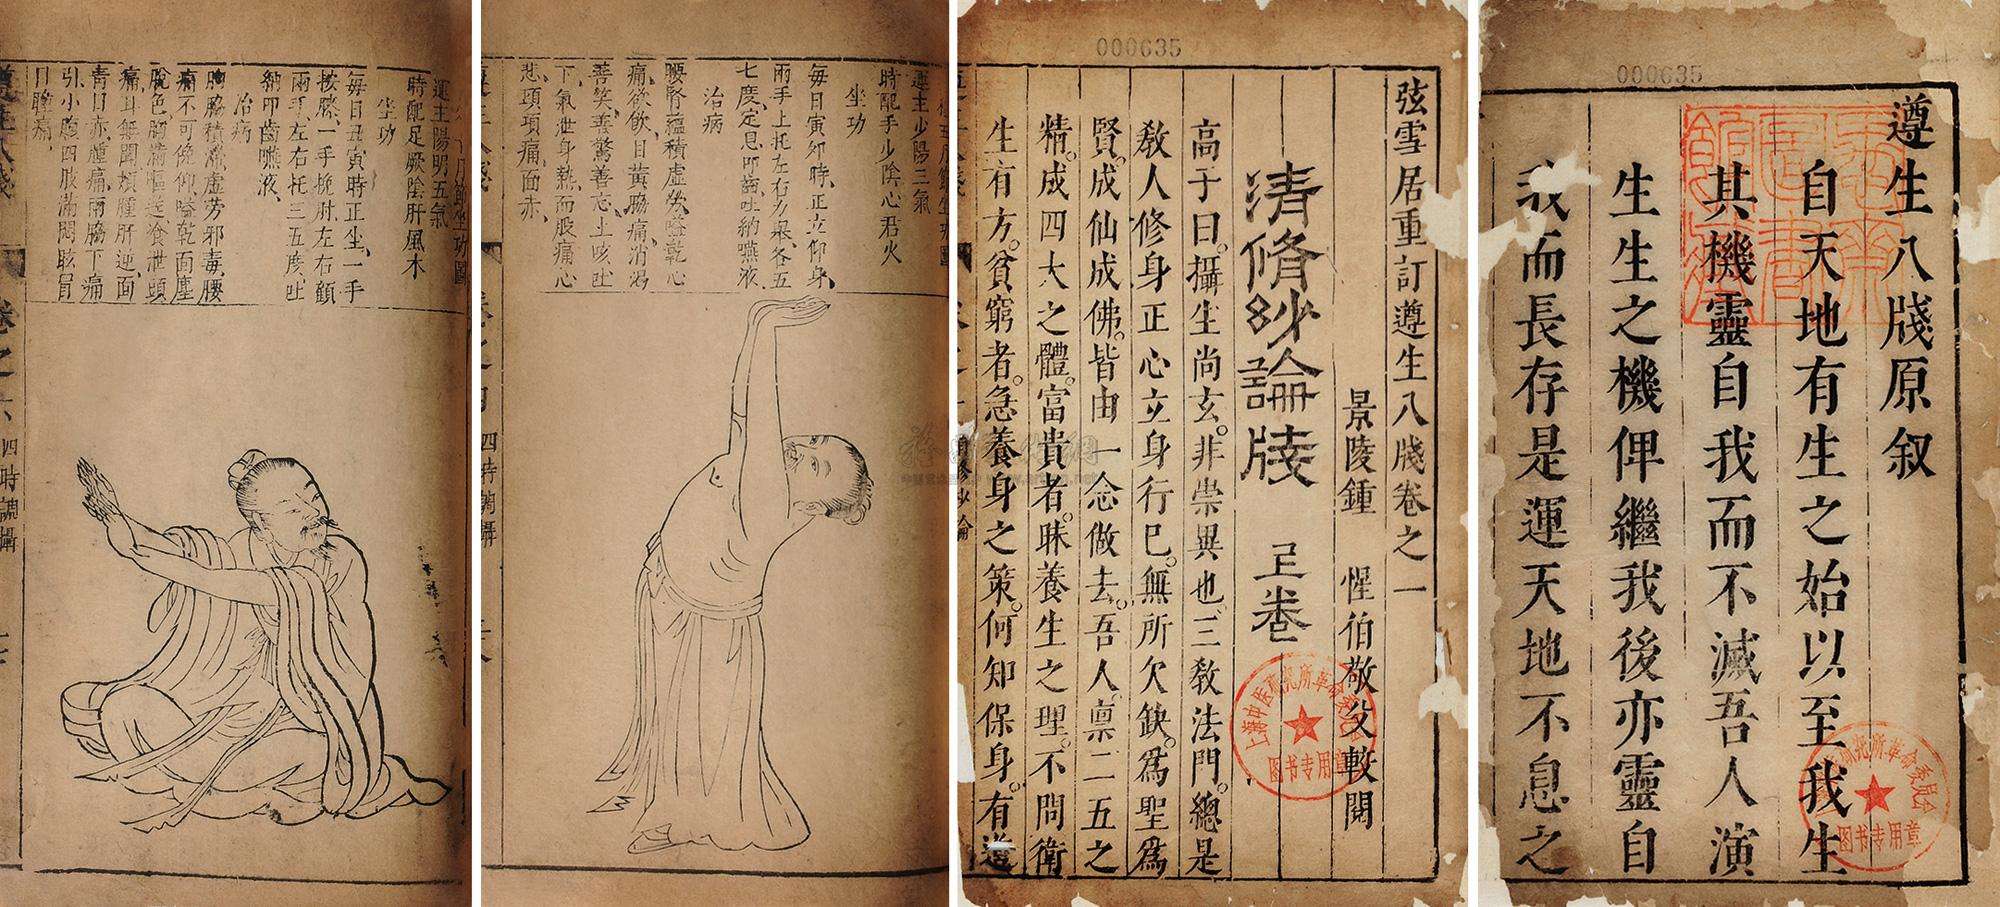 月節坐功圖
運主陽明五氣
時配足厥陰肝風木
坐功
每日丑寅時正坐、一手
按膝、一手挽肘左右顧
兩手左右托三五度、吐
納叩齒嚥液、
治病
胸脇積滯、虛勞邪毒、腰
痛不可俛仰、嗌乾面塵
脫色胸滿嘔逆飧泄頭
痛耳無聞頰腫肝逆面
青目赤腫痛、兩脇下痛
引小腹四肢滿悶眩冒
目瞳痛、
卷之六 四時調攝
月節坐功圖
運主少陽三氣
時配手少陰心君火
坐功
每日寅卯時、正立仰身、
兩手上托左右力舉、各五
七度、定息叩齒吐納嚥液、
治病
腰腎蘊積虛勞嗌乾心
痛、欲飲、目黃脇痛、消渴
善笑、善驚善忘、上咳吐
下氣泄身熱而股痛心
悲、頭項痛、面赤、
四時調攝
000635
弦雪居重訂遵生八牋卷之一
景陵鍾 惺伯敬父較閱
清脩妙論牋 上卷
高子曰。攝生尚玄。非崇異也、三教法門。總是
教人修身正心立身行己。無所欠缺。為聖為
賢。成仙成佛。皆由一念做去。吾人。稟二五之
精。成四大之體。富貴者。昧養生之理。不問衛
生有方。貧窮者。急養身之策。何知保身。有道
上海中医研究所革命委员会
图书专用章
000635
遵生八牋原叙
自天地有生之始以至我生
其機靈自我而不滅吾人演
生生之機俾繼我後亦靈自
我而長存是運天地不息之
研究所革命委员会
图书专用章